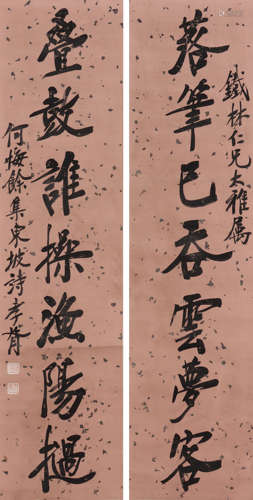 鐵林仁兄大雅属
落筆已吞雲夢客
疊鼓誰操漁陽撾
何梅餘集東坡詩李胥